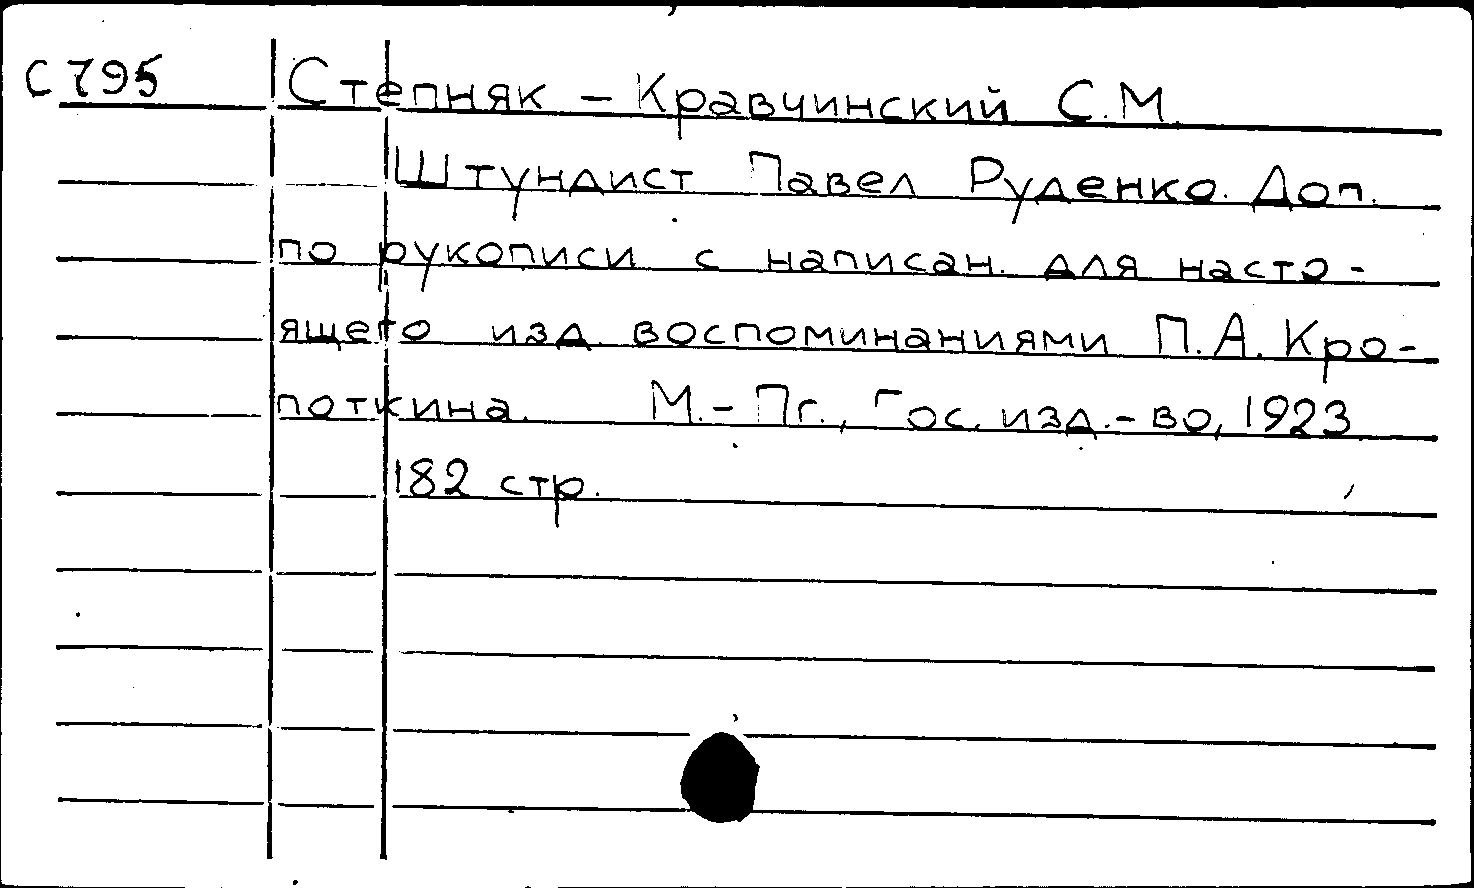 С 795 Степняк - Кравчинский С.М.
Штундист Павел Руденко. Доп.
по рукописи с написан. для насто-
ящего изд. воспоминаниями П.А. Кро-
поткина. М.-Пг., Гос. изд.-во, 1923
182 стр.